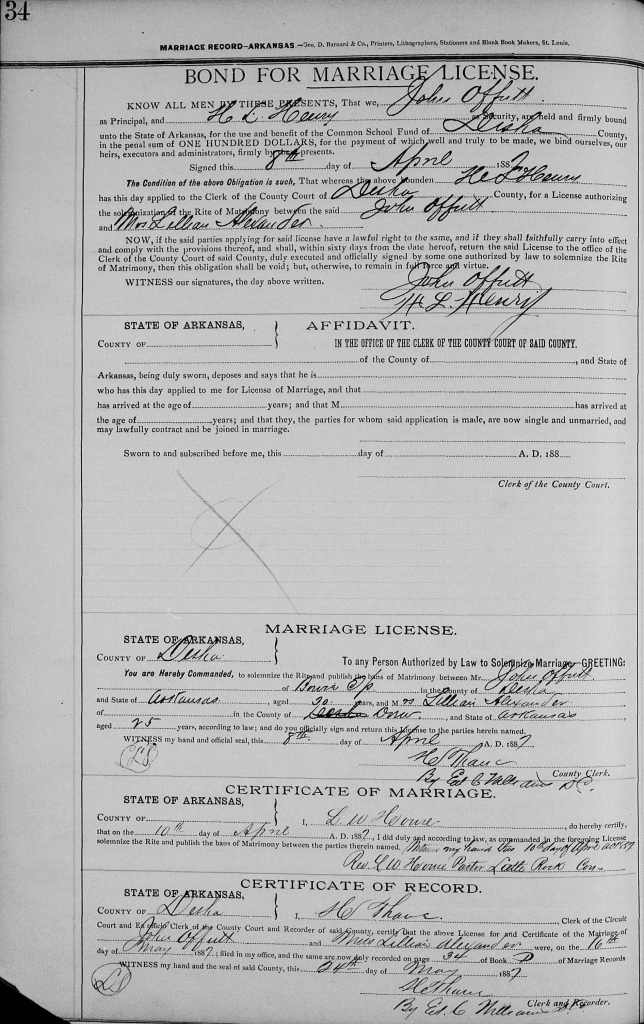 34
MARRIAGE RECORD—ARKANSAS.—Geo. D. Barnard & Co., Printers, Lithographers, Stationers and Blank Book Makers, St. Louis.
BOND FOR MARRIAGE LICENSE.
KNOW ALL MEN BY THESE PRESENTS, That we, John Offutt
as Principal, and H. L. Henry as Security, are held and firmly bound
unto the State of Arkansas, for the use and benefit of the Common School Fund of Desha County,
in the penal sum of ONE HUNDRED DOLLARS, for the payment of which well and truly to be made, we bind ourselves, our
heirs, executors and administrators, firmly by these presents.
Signed this 8th day of April 1887
The Condition of the above Obligation is such, That whereas the above bounden H. L. Henry
has this day applied to the Clerk of the County Court of Desha County, for a License authorizing
the solemnization of the Rite of Matrimony between the said John Offutt
and Mrs Lillian Alexander.
NOW, if the said parties applying for said license have a lawful right to the same, and if they shall faithfully carry into effect
and comply with the provisions thereof, and shall, within sixty days from the date hereof, return the said License to the office of the
Clerk of the County Court of said County, duly executed and officially signed by some one authorized by law to solemnize the Rite
of Matrimony, then this obligation shall be void; but, otherwise, to remain in full force and virtue.
WITNESS our signatures, the day above written.
John Offutt
H. L. Henry
STATE OF ARKANSAS,
COUNTY OF
AFFIDAVIT.
IN THE OFFICE OF THE CLERK OF THE COUNTY COURT OF SAID COUNTY.
of the County of , and State of
Arkansas, being duly sworn, deposes and says that he is
who has this day applied to me for License of Marriage, and that
has arrived at the age of years; and that M has arrived at
the age of years; and that they, the parties for whom said application is made, are now single and unmarried, and
may lawfully contract and be joined in marriage.
Sworn to and subscribed before me, this day of A. D. 188
Clerk of the County Court.
MARRIAGE LICENSE.
STATE OF ARKANSAS,
COUNTY OF Desha
To any Person Authorized by Law to Solemnize Marriage—GREETING:
You are Hereby Commanded, to solemnize the Rite and publish the bans of Matrimony between Mr. John Offutt
of Bowie T/p in the County of Desha
and State of Arkansas aged 30 years, and Mrs Lillian Alexander
of in the County of Desha Drew, and State of Arkansas
aged 25 years, according to law; and do you officially sign and return this License to the parties herein named.
WITNESS my hand and official seal, this 8th day of April A. D. 1887
H Thane
County Clerk.
By Ed. C Williams D.C.
LS
CERTIFICATE OF MARRIAGE.
STATE OF ARKANSAS,
COUNTY OF
I, L W Howe, do hereby certify,
that on the 10th day of April A. D. 1887, I did duly and according to law, as commanded in the foregoing License
solemnize the Rite and publish the bans of Matrimony between the parties therein named. Witness my hand this 10th day of April
Rev. L W Howe Pastor Little Rock Con.
CERTIFICATE OF RECORD.
STATE OF ARKANSAS,
COUNTY OF Desha
I, H Thane Clerk of the Circuit
Court and Ex-officio Clerk of the County Court and Recorder of said County, certify that the above License for and Certificate of the Marriage of
John Offutt and Miss Lillian Alexander were, on the 16th
day of May 1887, filed in my office, and the same are now duly recorded on page 34 of Book D of Marriage Records
WITNESS my hand and the seal of said County, this 24th day of May 1887
H Thane
Clerk and Recorder.
By Ed. C. Williams D.C.
LS